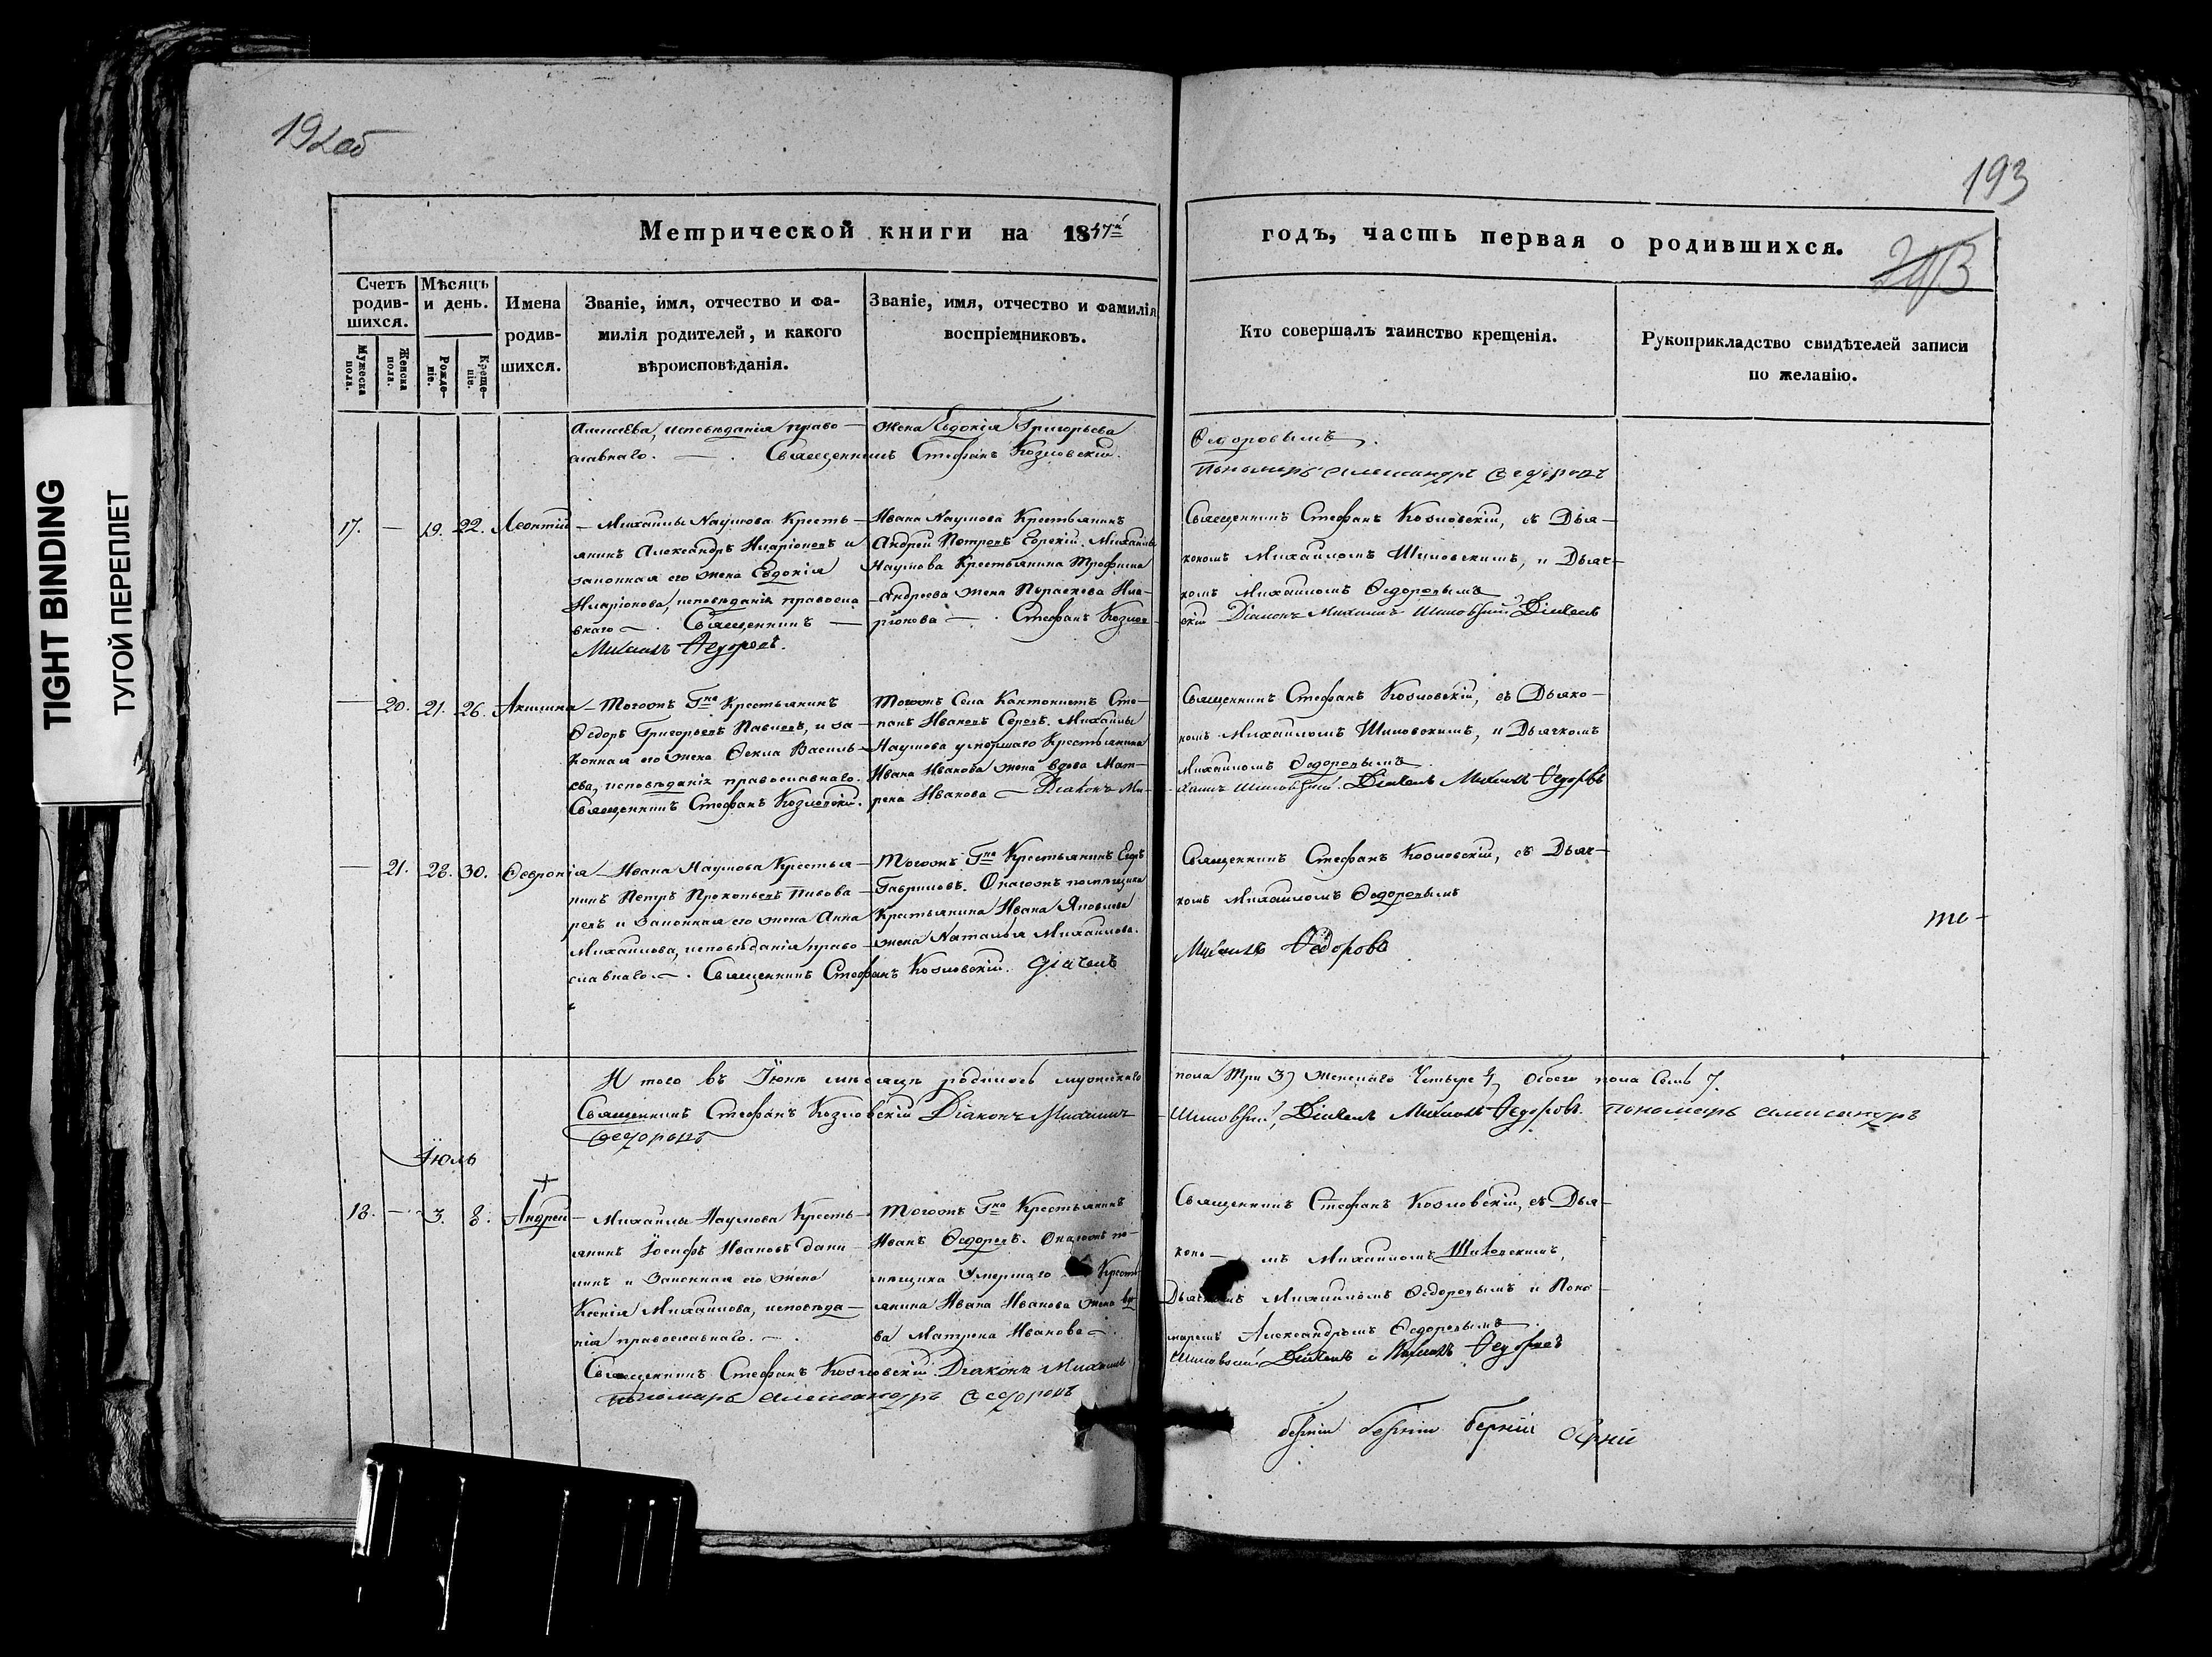 192об
193
203
TIGHT BINDING
ТУГОЙ ПЕРЕПЛЕТ
Метрической книги на 1847й годъ, часть первая о родившихся.
Счетъ родив-шихся.
Мужеска пола.
Женска пола.
Мѣсяцъ и день.
Рожде-ніе.
Креще-ніе.
Имена родив-шихся.
Званіе, имя, отчество и фа-
милія родителей, и какого
вѣроисповѣданія.
Званіе, имя, отчество и фамилія
воспріемниковъ.
Кто совершалъ таинство крещенія.
Рукоприкладство свидѣтелей записи
по желанію.
исповѣданія право-
славнаго. — . Священникъ Стефанъ Козловскій.
жена Евдокія Григорьева
Ѳедоровымъ.
Пономарь Александръ Ѳедоровъ
17. — 19. 22. Леонтій
Михаилы Наумова Кресть-
янинъ Александръ Иларіоновъ и
законная его жена Евдокія
Иларіонова, исповѣданія правосла-
внаго — . Священникъ —
Михаилъ Ѳедоровъ.
Ивана Наумова Крестьянинъ
Андрей Петровъ Михаилы
Наумова Крестьянина Трофима
Андреева жена Параскева Ила-
ріонова — . Стефанъ Козлов-
Священникъ Стефанъ Козловскій, съ Дья-
кономъ Михаиломъ Шиповскимъ, и Дьяч-
комъ Михаиломъ Ѳедоровымъ
скій Діаконъ Михаилъ Шиповскій Дьячекъ
— 20. 21. 26. Акилина
Тогожъ Гна Крестьянинъ
Ѳедоръ Григорьевъ Павловъ, и за-
конная его жена Ѳекла Василь-
ева, исповѣданія православнаго.
Священникъ Стефанъ Козловскій.
Тогожъ Села Кантонистъ Сте-
панъ Ивановъ Серовъ. Михаилы
Наумова умершаго Крестьянина
Ивана Иванова жена вдова Мат-
рена Иванова — Діаконъ Ми-
Священникъ Стефанъ Козловскій, съ Дьяко-
номъ Михаиломъ Шиповскимъ, и Дьячкомъ
Михаиломъ Ѳедоровымъ.
хаилъ Шиповскій. Дьячекъ Михаилъ Ѳедоровъ
— 21. 28. 30. Ѳевронія
Ивана Наумова Крестья-
нинъ Петръ Прокопьевъ Пивова-
ровъ и законная его жена Анна
Михаилова, исповѣданія право-
славнаго. — . Священникъ Стефанъ Козловскій. Діячекъ
Тогожъ Гна Крестьянинъ Егоръ
Гавриловъ. Онагожъ помѣщика
Крестьянина Ивана Яковлева
жена Наталья Михаилова.
Священникъ Стефанъ Козловскій, съ Дьяч-
комъ Михаиломъ Ѳедоровымъ
Михаилъ Ѳедоровъ
И того въ Іюнѣ мѣсяцѣ родилось мужескаго пола Три 3, женскаго Четыре 4, обоего пола Семь 7.
Священникъ Стефанъ Козловскій Діаконъ Михаилъ Шиповскій, Дьячекъ Михаилъ Ѳедоровъ. Пономарь Александръ
Ѳедоровъ
Іюль
18. — 3. 8. Андрей
Михаилы Наумова Кресть-
янинъ Іосифъ Ивановъ Дани-
линъ и Законная его жена
Ксенія Михаилова, исповѣда-
нія православнаго. — .
Тогожъ Гна Крестьянинъ
Иванъ Ѳедоровъ. Онагожъ по-
мѣщика Умершаго Кресть-
янина Ивана Иванова жена вдо-
ва Матрена Иванова — .
Священникъ Стефанъ Козловскій, съ Дья-
коно- мъ Михаиломъ Шиповскимъ,
Дьячкомъ Михаиломъ Ѳедоровымъ и Поно-
маремъ Александромъ Ѳедоровымъ.
Священникъ Стефанъ Козловскій. Діаконъ Михаилъ Шиповскій Дьячекъ Михаилъ Ѳедоровъ
Пономарь Александръ Ѳедоровъ